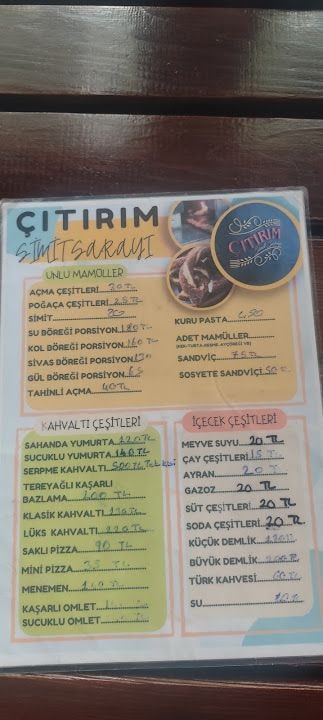 ÇITIRIM
SİMİT SARAYI
ÇITIRIM
UNLU MAMÜLLER
AÇMA ÇEŞİTLERİ 30 TL
POĞAÇA ÇEŞİTLERİ 25 TL
SİMİT 20
SU BÖREĞİ PORSİYON 180 TL
KOL BÖREĞİ PORSİYON 160 TL
SİVAS BÖREĞİ PORSİYON 130
GÜL BÖREĞİ PORSİYON
TAHİNLİ AÇMA 40 TL
KURU PASTA
ADET MAMÜLLER
SANDVİÇ 75 TL
SOSYETE SANDVİÇİ
KAHVALTI ÇEŞİTLERİ
SAHANDA YUMURTA 120 TL
SUCUKLU YUMURTA 140 TL
SERPME KAHVALTI 500 TL
TEREYAĞLI KAŞARLI
BAZLAMA 200 TL
KLASİK KAHVALTI
LÜKS KAHVALTI 220 TL
SAKLI PİZZA 90 TL
MİNİ PİZZA 35 TL
MENEMEN
KAŞARLI OMLET
SUCUKLU OMLET
İÇECEK ÇEŞİTLERİ
MEYVE SUYU 20 TL
ÇAY ÇEŞİTLERİ 15 TL
AYRAN 20 TL
GAZOZ 20 TL
SÜT ÇEŞİTLERİ 20 TL
SODA ÇEŞİTLERİ 20 TL
KÜÇÜK DEMLİK
BÜYÜK DEMLİK
TÜRK KAHVESİ 60 TL
SU